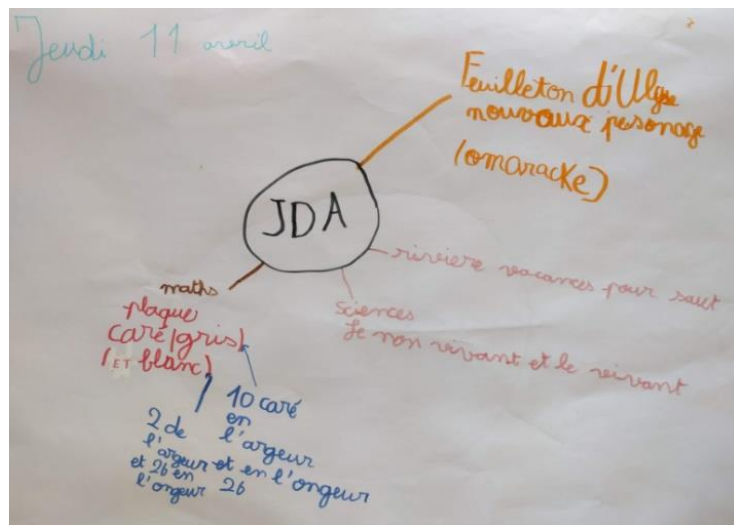 Jeudi 11 avril
Feuilleton d'Ulysse
nouvaux pesonage
(omaracke)
JDA
riviere vacances pour saut
sciences
le non vivant et le vivant
maths
plaque
caré (gris)
(ET blanc)
10 caré
en
l'argeur
et en l'ongeur
26
2 de
l'argeur
et 26 en
l'ongeur